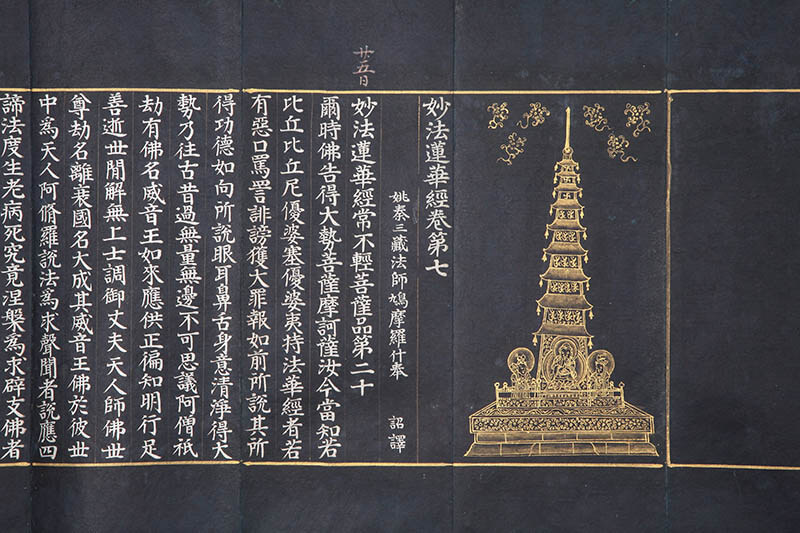 廿五日
妙法蓮華經卷第七
姚秦三藏法師鳩摩羅什奉 詔譯
妙法蓮華經常不輕菩薩品第二十
爾時佛告得大勢菩薩摩訶薩汝今當知若
比丘比丘尼優婆塞優婆夷持法華經者若
有惡口罵詈誹謗獲大罪報如前所說其所
得功德如向所說眼耳鼻舌身意清淨得大
勢乃往古昔過無量無邊不可思議阿僧祇
劫有佛名威音王如來應供正徧知明行足
善逝世間解無上士調御丈夫天人師佛世
尊劫名離衰國名大成其威音王佛於彼世
中爲天人阿脩羅說法爲求聲聞者說應四
諦法度生老病死究竟涅槃爲求辟支佛者